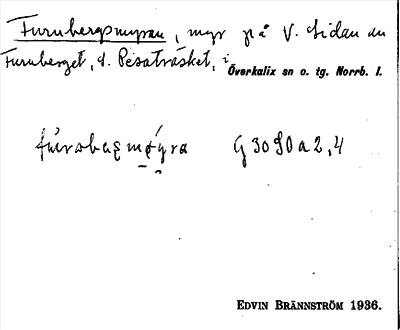 Furubergsmyran, myr på V. sidan av
Furuberget, S. Pesaträsket, i
Överkalix sn o. tg. Norrb. l.
G 3090 a 2, 4
EDVIN BRÄNNSTRÖM 1936.